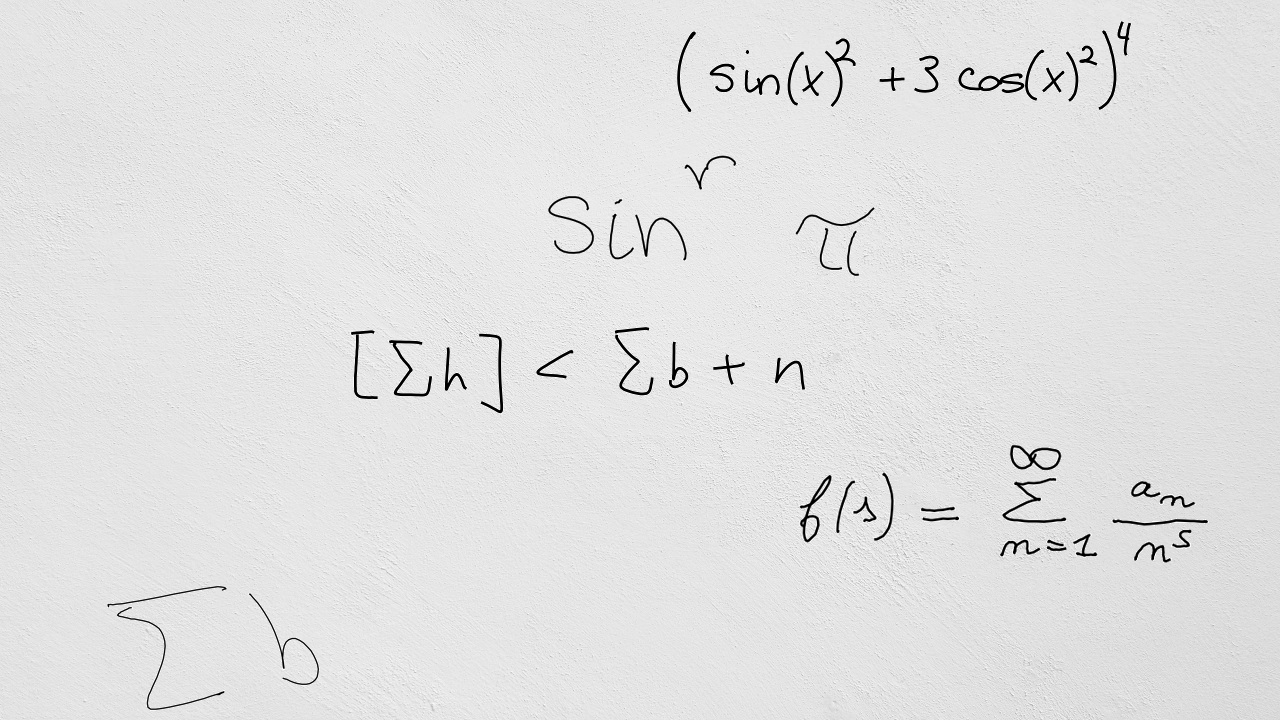 (sin(x)² + 3 cos(x)²)⁴
sinʳ π
[∑h] < ∑b + n
f(s) = ∑_{n=1}^{∞} a_n / n^s
∑b